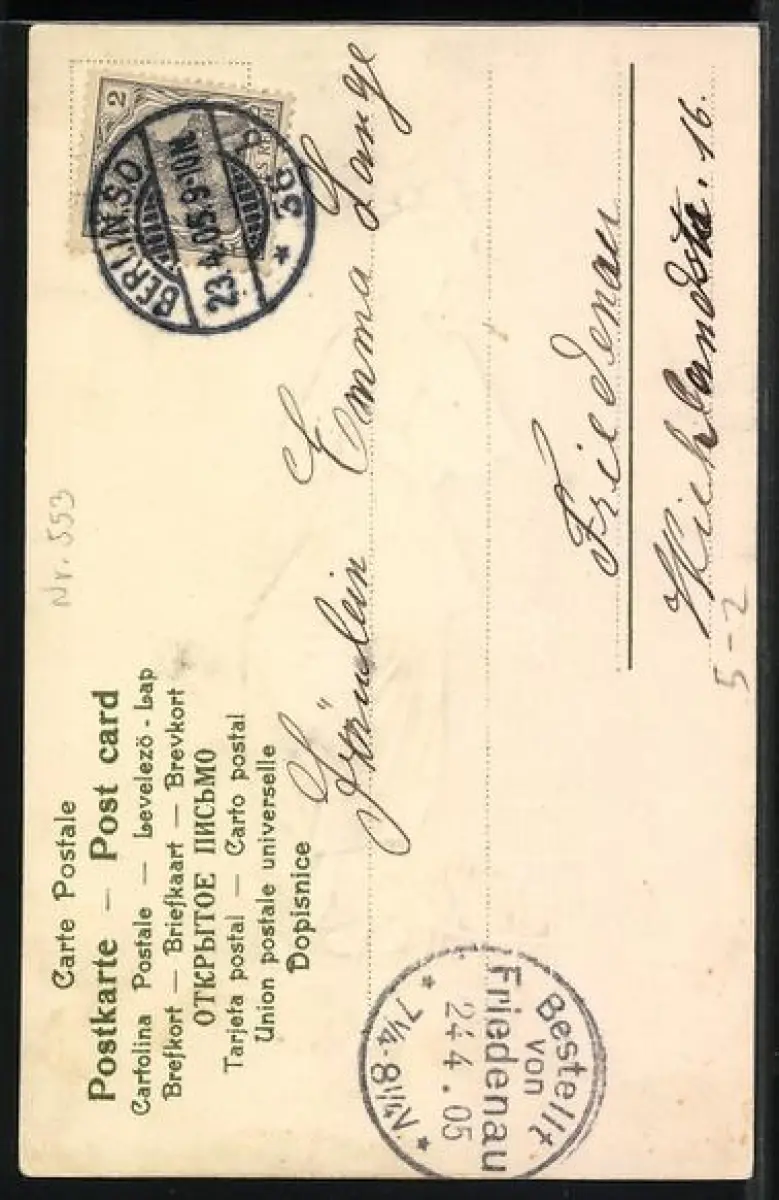 Carte Postale
Postkarte — Post card
Cartolina Postale — Levelező-Lap
Brefkort — Briefkaart — Brevkort
ОТКРЫТОЕ ПИСЬМО
Tarjeta postal — Carto postal
Union postale universelle
Dopisnice
Nr. 553
2
BERLIN.S.O
23.4.05.9-10N.
* 36 b
Fräulein Emma Lange
Friedenau
16.
5-2
Bestellt
von
Friedenau
24.4.05
* 7¼-8½V *